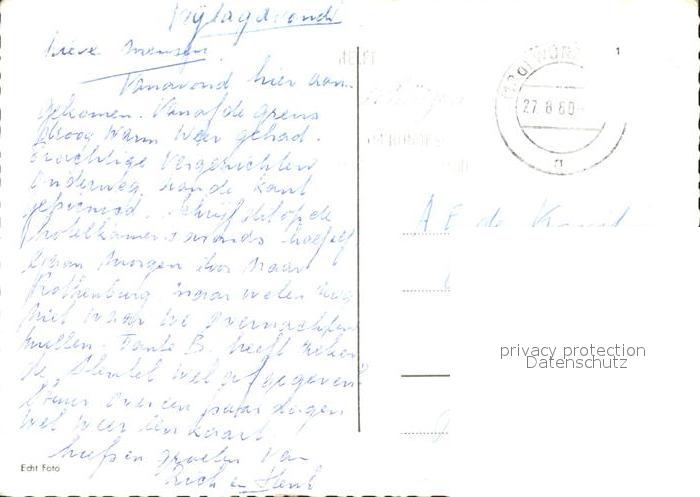 Vrijdagavond
Lieve Mensen,
Vanavond hier aan-
gekomen. Vanaf de grens
droog warm weer gehad.
Prachtige Vergezichten
onderweg, aan de kant
gepicnicd. Schrijf dit op de
hotelkamer 's avonds half elf
Gaan morgen door naar
Rothenburg, maar weten nog
niet waar we overnachten
zullen. Tante B. heeft zeker
de sleutel wel afgegeven?
Sturen over een paar dagen
wel weer een kaart
groeten van
en Henk
Echt Foto
27.8.60
1
A
de
privacy protection
Datenschutz